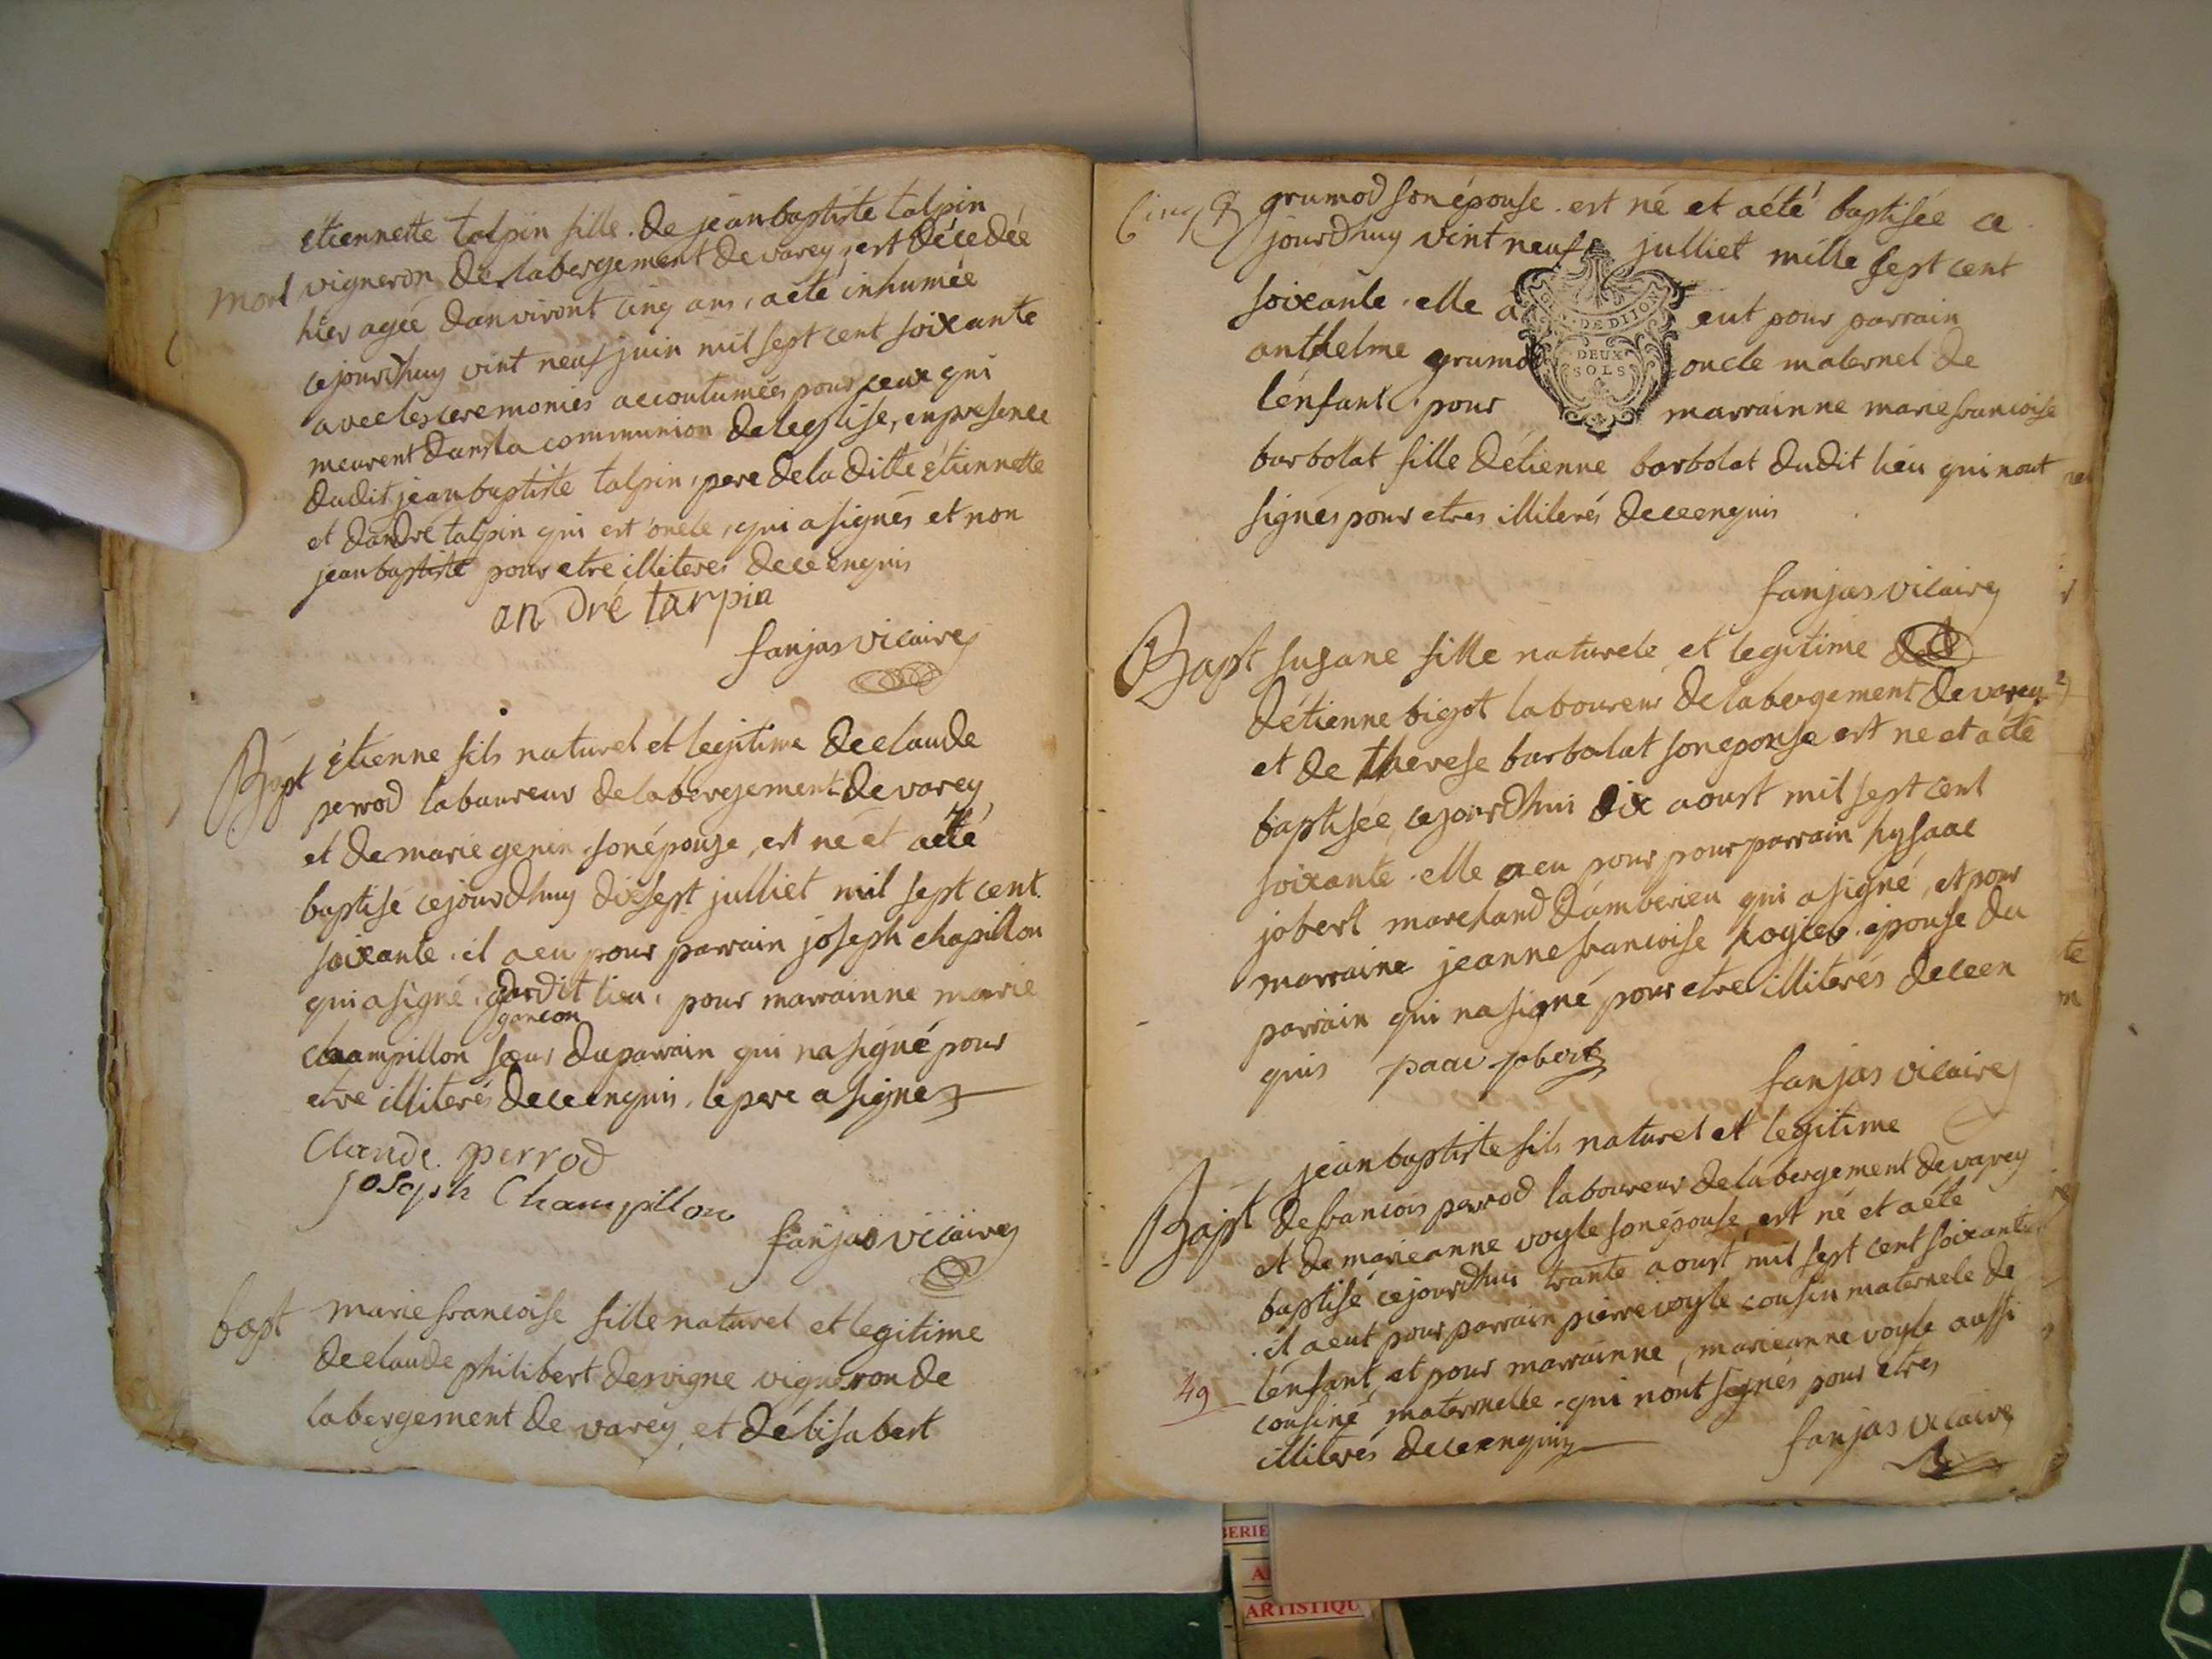 étiennette talpin fille. de jean baptiste talpin
mort vigneron de labergement de varey, est décedée
hier agée danviront cinq ans, a été inhumée
cejourdhuy vint neuf juin mil sept cent soixante
avec les ceremonies accoutumées pour ceux qui
meurent dans la communion de leglise, en presence
dudit jean baptiste talpin, pere de la ditte étiennette
et dandré talpin qui est oncle, qui a signés et non
jean baptiste pour etre illiteres de ce enquis
an dré tarpin
fanjas vicaire
Bapt étienne fils naturel et legitime de claude
perrod laboureur de labergement de varey
et de marie genin son épouse, est né et a été
baptisé cejourdhuy dix sept julliet mil sept cent
soixante. il a eu pour parrain joseph chapillon
qui a signé. dudit lieu, pour marrainne marie
garcon
champillon sœur du parrain qui na signé pour
etre illiterés de ce enquis, le pere a signé
Claude. perrod
Joseph Champillon
fanjas vicaire
bapt marie francoise fille naturel et legitime
de claude philibert desvigne vigneron de
labergement de varey, et délisabert
Cinq grumod son épouse. est né et a été baptisée ce
jourdhuy vint neuf julliet mille sept cent
soixante. elle a eut pour parrain
anthelme grumod oncle maternel de
lénfant. pour marrainne marie francoise
GEN. DE DIJON
DEUX
SOLS
barbolat fille détienne barbolat dudit lieu qui nont
signés pour etres illiterés de ce enquis
fanjas vicaire
Bapt susane fille naturele et legitime
détienne bigot laboureur de labergement de varey
et de therese barbolat son eponse est ne et a été
baptisée, cejourdhui dix aoust mil sept cent
soixante. elle a eu pour pour parrain hysaac
jobert marchand dámberieu qui a signé, et pour
marraine jeanne francoise rogier. épouse du
parrain qui na signé pour etre illiterés de ce en
quis paac jobert
fanjas vicaire
jean baptiste fils naturel et legitime
Bapt de francois perrod laboureur de labergement de varey
et de marie anne voyle son épouse, est né et a été
baptisé cejourdhui trante aoust mil sept cent soixante
. il a eut pour parrain pierre voyle cousin maternele de
49 lénfant, et pour marrainne, marie anne voyle aussi
cousine maternelle. qui nónt signés pour etres
illiterés de ce enquis
fanjas vicaire
BERIE
ARTISTIQU